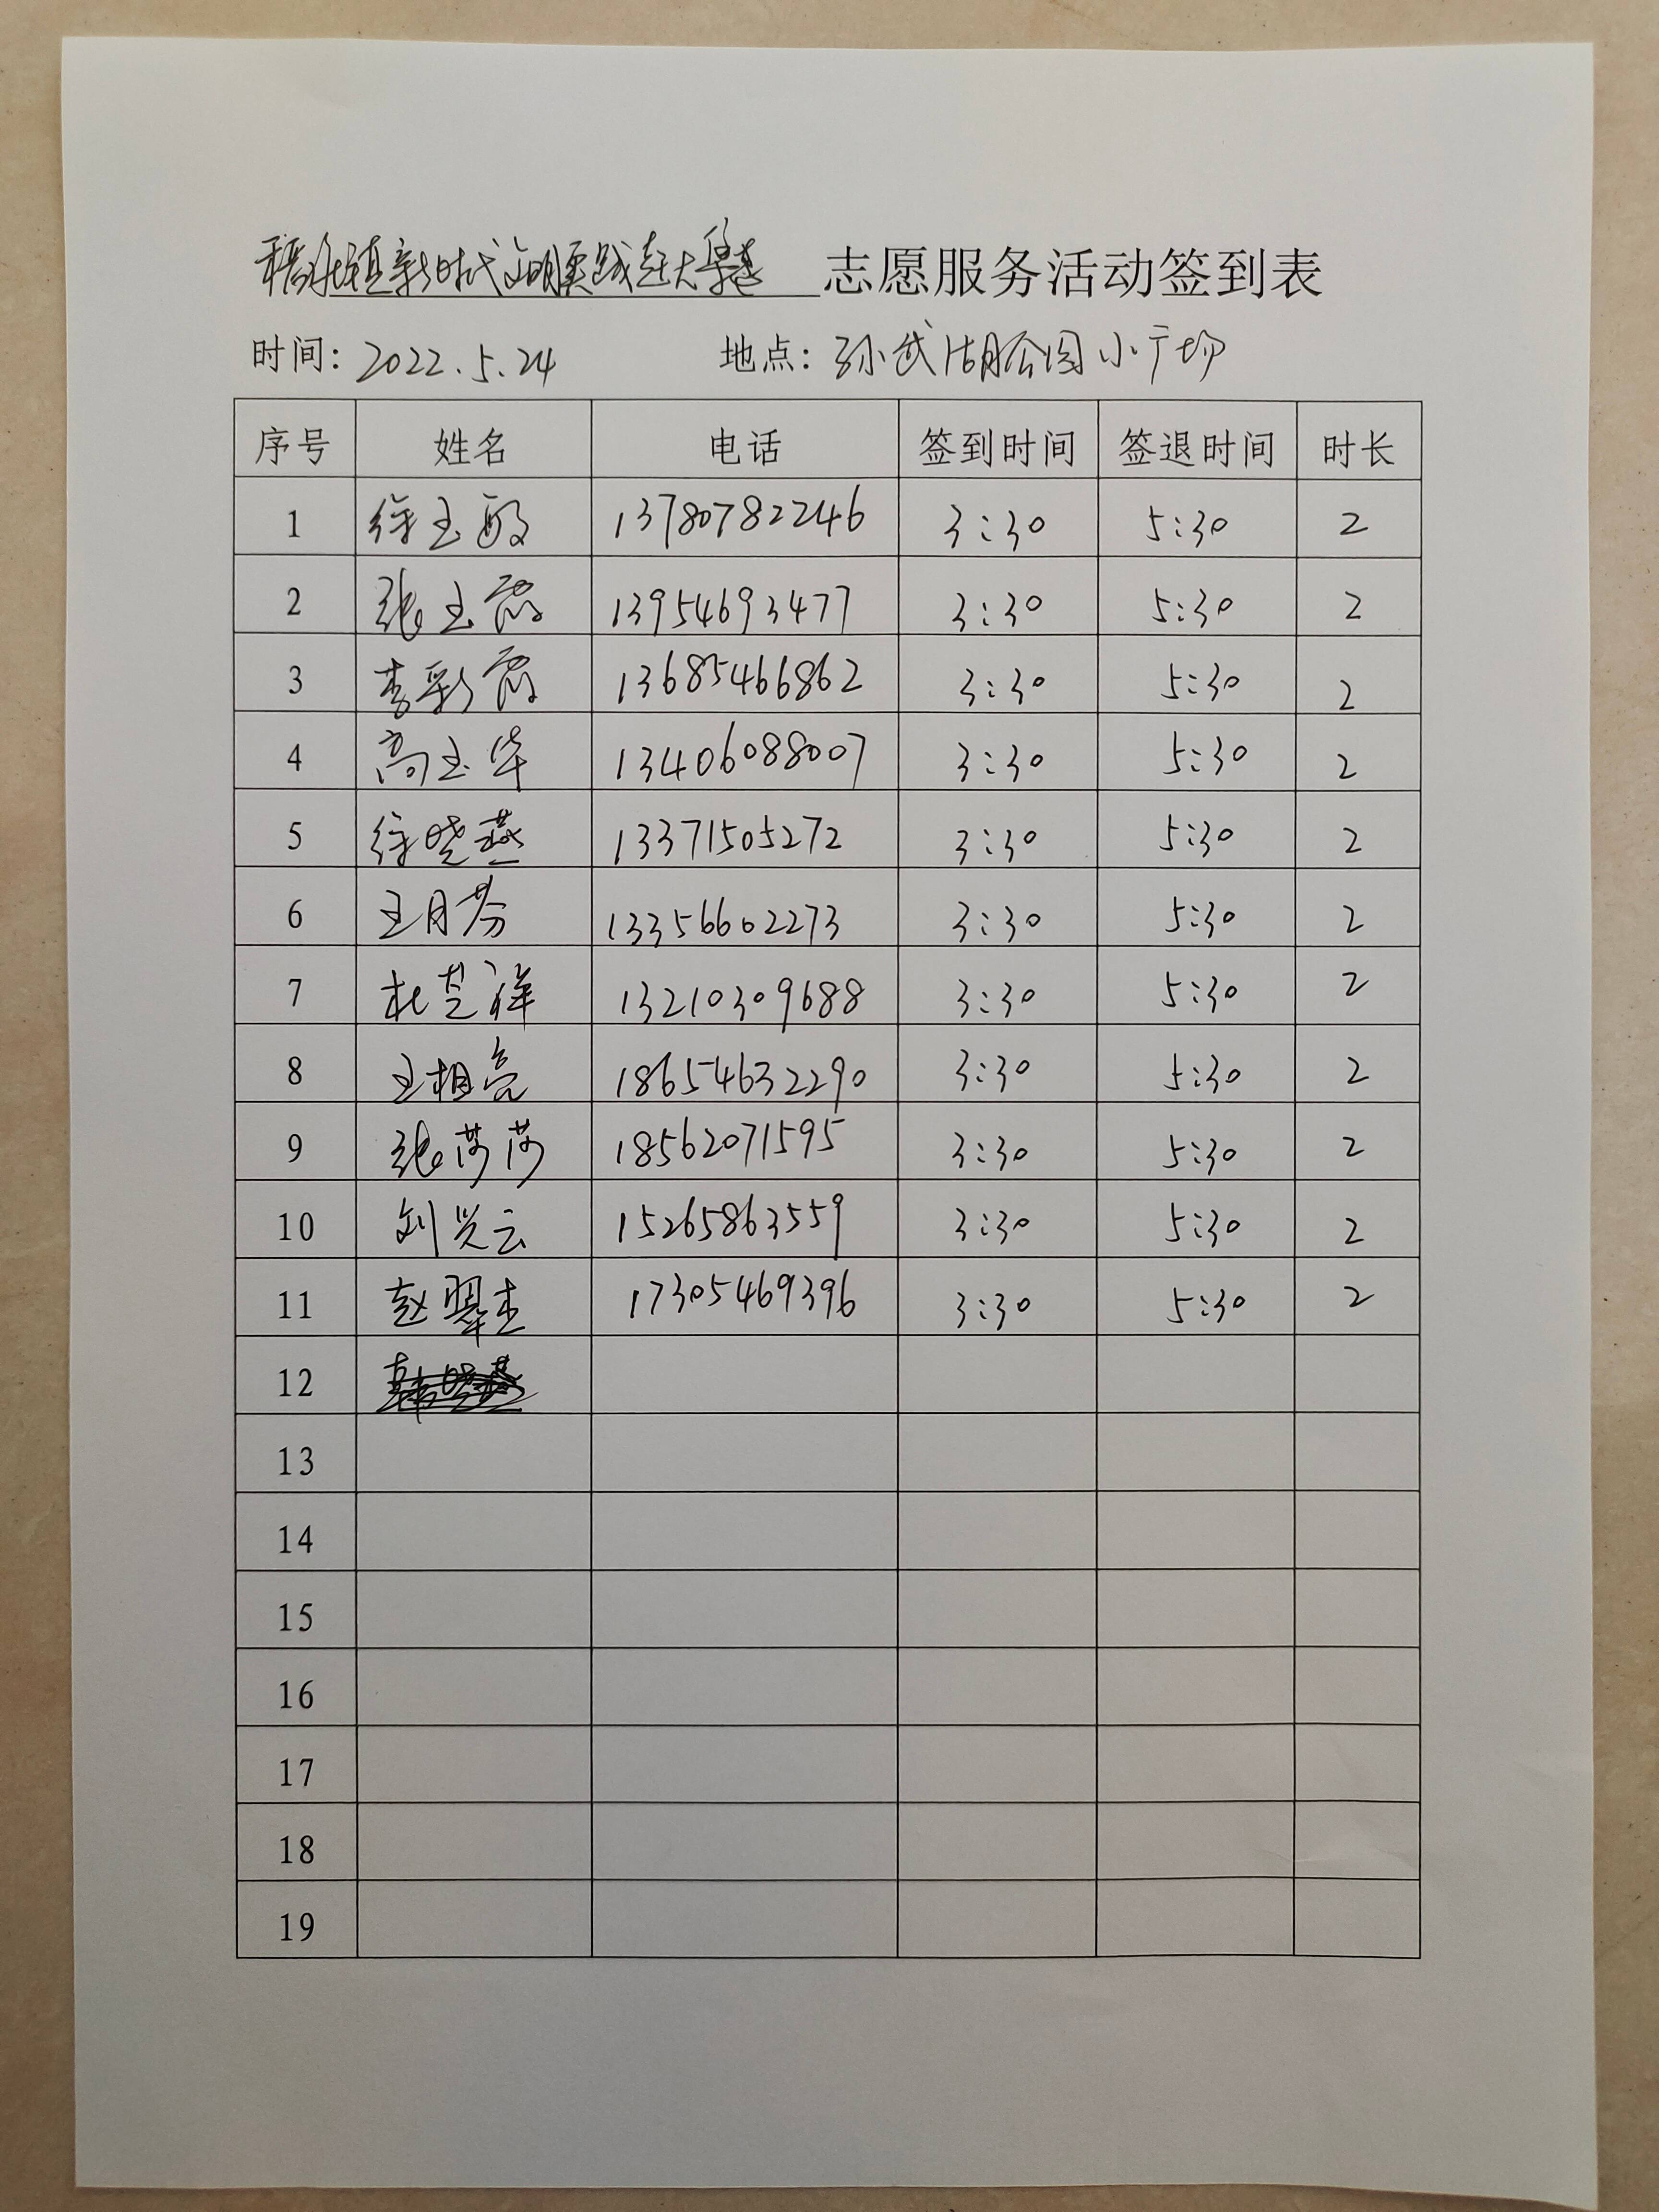 稻庄镇新时代文明实践赶大集 志愿服务活动签到表
时间: 2022.5.24 地点: 孙武湖公园小广场
序号 姓名 电话 签到时间 签退时间 时长
1 徐玉 13780782246 3:30 5:30 2
2 张玉霞 13954693477 3:30 5:30 2
3 李彩霞 13685466862 3:30 5:30 2
4 高玉华 13406088007 3:30 5:30 2
5 徐晓燕 13371505272 3:30 5:30 2
6 王月芬 13356602273 3:30 5:30 2
7 杜芝祥 13210309688 3:30 5:30 2
8 王相亮 18654632290 3:30 5:30 2
9 张莎莎 18562071595 3:30 5:30 2
10 刘兴云 15265863559 3:30 5:30 2
11 赵翠杰 17305469396 3:30 5:30 2
12
13
14
15
16
17
18
19